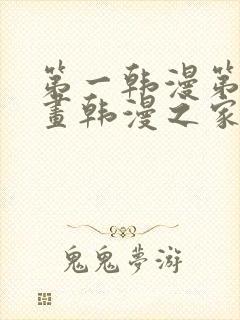 第一韩漫第
画韩漫之家
鬼鬼梦游